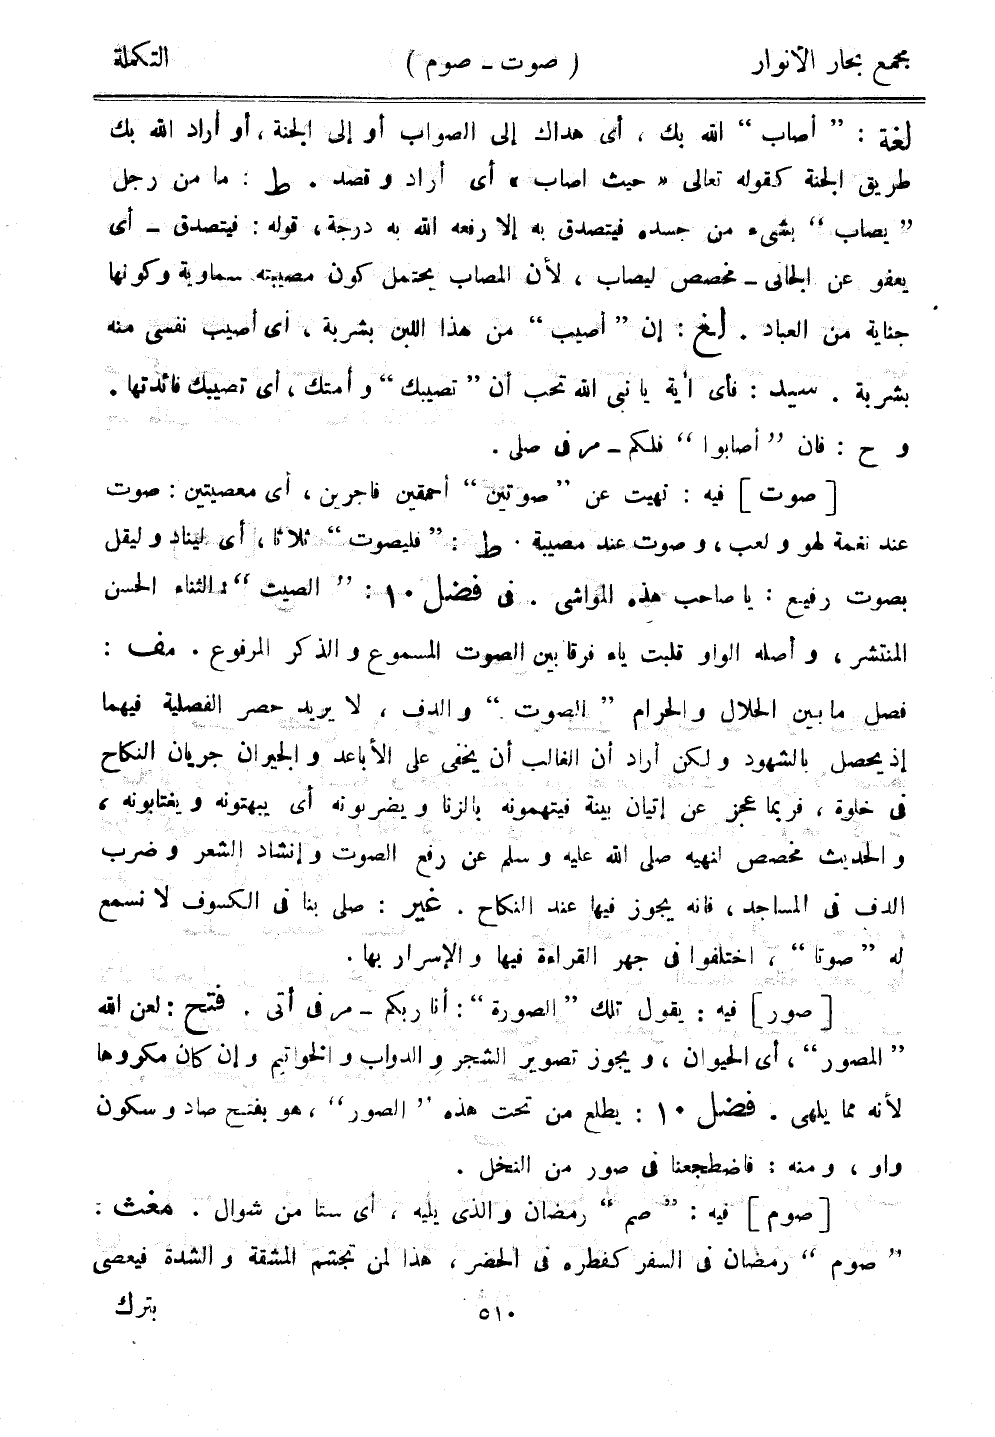 مجمع بحار الأنوار ( صوت ـ صوم ) التكملة
لغة : ” أصاب “ الله بك ، أى هداك إلى الصواب أو إلى الجنة ، أو أراد الله بك
طريق الجنة كقوله تعالى « حيث اصاب » أى أراد و قصد . ط : ما من رجل
” يصاب “ بشىء من جسده فيتصدق به إلا رفعه الله به درجة ، قوله : فيتصدق ـ أى
يعفو عن الجانى ـ مخصص ليصاب ، لأن المصاب يحتمل كون مصيبته سماوية وكونها
جناية من العباد . لغ : إن ” أصيب “ من هذا اللبن بشربة ، أى أصيب نفسى منه
بشربة . سيد : فأى أية يا نبى الله تحب أن ” تصيبك “ و أمتك ، أى تصيبك فائدتها .
و ح : فان ” أصابوا “ فلكم ـ مر فى صلى .
[ صوت ] فيه : نهيت عن ” صوتين “ أحمقين فاجرين ، أى معصيتين : صوت
عند نغمة لهو و لعب ، و صوت عند مصيبة . ط : ” فليصوت “ ثلاثا ، أى ليناد و ليقل
بصوت رفيع : يا صاحب هذه المواشى . فى فضل ١٠ : ” الصيت “ : الثناء الحسن
المنتشر ، و أصله الواو قلبت ياء فرقا بين الصوت المسموع و الذكر المرفوع . مف :
فصل ما بين الحلال و الحرام ” الصوت “ و الدف ، لا يريد حصر الفصلية فيهما
إذ يحصل بالشهود و لكن أراد أن الغالب أن يخفى على الأباعد و الجيران جريان النكاح
فى خلوة ، فربما عجز عن إتيان بينة فيتهمونه بالزنا و يضربونه أى يبهتونه و يغتابونه ،
و الحديث مخصص لنهيه صلى الله عليه و سلم عن رفع الصوت و إنشاد الشعر و ضرب
الدف فى المساجد ، فانه يجوز فيها عند النكاح . غير : صلى بنا فى الكسوف لا نسمع
له ” صوتا “ ، اختلفوا فى جهر القراءة فيها و الإسرار بها .
[ صور ] فيه : يقول تلك ” الصورة “ : أنا ربكم ـ مر فى أتى . فتح : لعن الله
” المصور “ ، أى الحيوان ، و يجوز تصوير الشجر و الدواب و الخواتيم و إن كان مكروها
لأنه مما يلهى . فضل ١٠ : يطلع من تحت هذه ” الصور “ ، هو بفتح صاد و سكون
واو ، و منه : فاضطجعنا فى صور من النخل .
[ صوم ] فيه : ” صم “ رمضان و الذى يليه ، أى ستا من شوال . مغث :
” صوم “ رمضان فى السفر كفطره فى الحضر ، هذا لمن تجشم المشقة و الشدة فيعصى
٥١٠ بترك